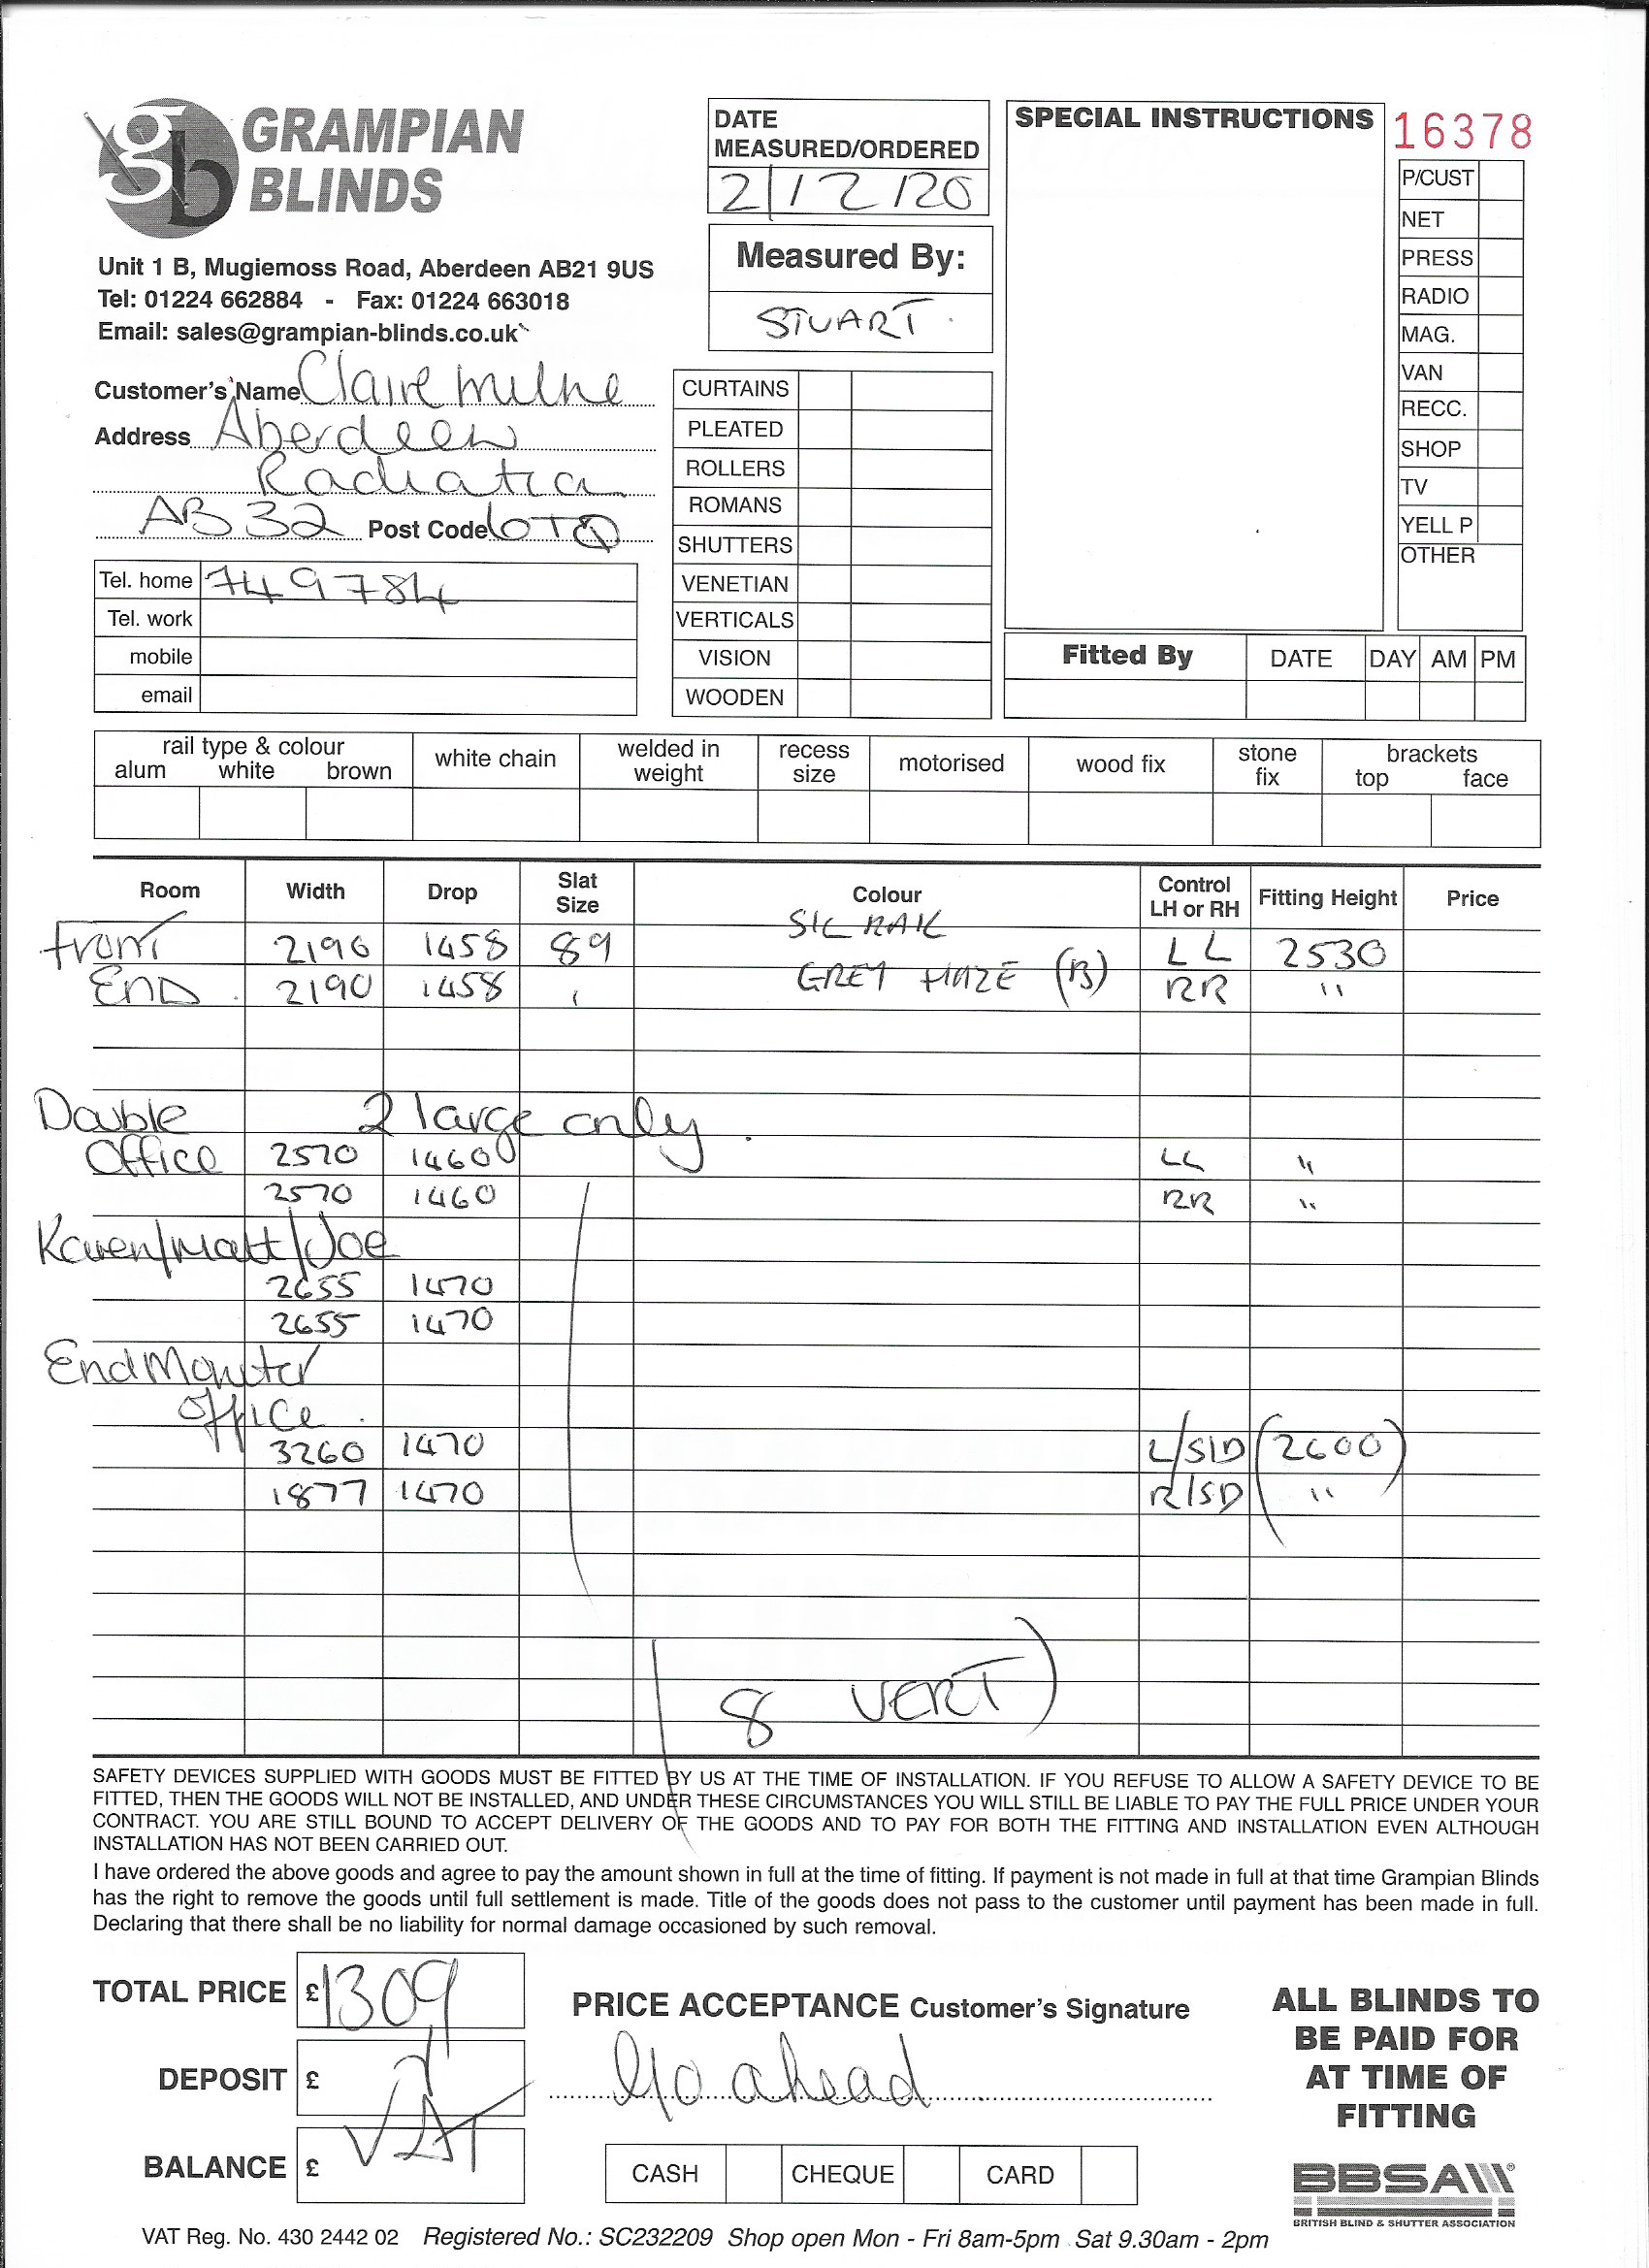 gb GRAMPIAN
BLINDS
Unit 1 B, Mugiemoss Road, Aberdeen AB21 9US
Tel: 01224 662884 - Fax: 01224 663018
Email: sales@grampian-blinds.co.uk
Customer's Name Claire Milne
Address Aberdeen
Radiator
AB32 Post Code 6TQ
Tel. home 749784
Tel. work
mobile
email
DATE
MEASURED/ORDERED
2/12/20
Measured By:
STUART
CURTAINS
PLEATED
ROLLERS
ROMANS
SHUTTERS
VENETIAN
VERTICALS
VISION
WOODEN
SPECIAL INSTRUCTIONS
16378
P/CUST
NET
PRESS
RADIO
MAG.
VAN
RECC.
SHOP
TV
YELL P
OTHER
Fitted By DATE DAY AM PM
rail type & colour
alum white brown
white chain
welded in
weight
recess
size
motorised
wood fix
stone
fix
brackets
top face
Room Width Drop Slat Size Colour Control LH or RH Fitting Height Price
SIL RAIL
Front 2190 1458 89 LL 2530
END 2190 1458 GREY HAZE (B) RR "
Double 2 large only.
Office 2570 1460 LL "
2570 1460 RR "
Karen/Matt/Joe
2655 1470
2655 1470
End Monitor
Office
3260 1470 L/SID (2600)
1877 1470 R/SID "
8 VERT)
SAFETY DEVICES SUPPLIED WITH GOODS MUST BE FITTED BY US AT THE TIME OF INSTALLATION. IF YOU REFUSE TO ALLOW A SAFETY DEVICE TO BE
FITTED, THEN THE GOODS WILL NOT BE INSTALLED, AND UNDER THESE CIRCUMSTANCES YOU WILL STILL BE LIABLE TO PAY THE FULL PRICE UNDER YOUR
CONTRACT. YOU ARE STILL BOUND TO ACCEPT DELIVERY OF THE GOODS AND TO PAY FOR BOTH THE FITTING AND INSTALLATION EVEN ALTHOUGH
INSTALLATION HAS NOT BEEN CARRIED OUT.
I have ordered the above goods and agree to pay the amount shown in full at the time of fitting. If payment is not made in full at that time Grampian Blinds
has the right to remove the goods until full settlement is made. Title of the goods does not pass to the customer until payment has been made in full.
Declaring that there shall be no liability for normal damage occasioned by such removal.
TOTAL PRICE £1309
DEPOSIT £
BALANCE £
VAT
PRICE ACCEPTANCE Customer's Signature
Go ahead
CASH CHEQUE CARD
ALL BLINDS TO
BE PAID FOR
AT TIME OF
FITTING
BBSA
BRITISH BLIND & SHUTTER ASSOCIATION
VAT Reg. No. 430 2442 02 Registered No.: SC232209 Shop open Mon - Fri 8am-5pm Sat 9.30am - 2pm